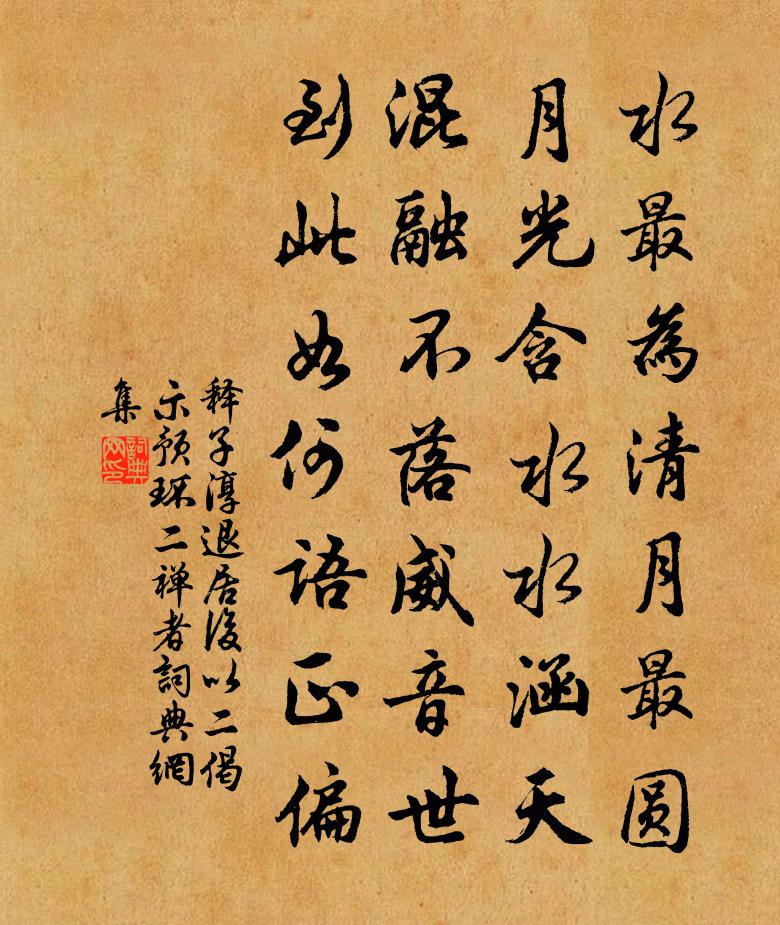 水最為清月最圆
月光含水水涵天
混融不落威音世
到此如何语正偏
释子淳退居後以二偈
示预珠二禅者詞典網
集
詞典網印